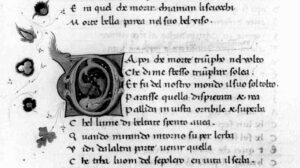 E in quel che morte chiaman li sciocchi
Morte bella parea nel suo bel viso
Da poi che morte triumpho nel volto
Che di me stesso triumphar solea
Et fu del nostro mondo il suo sol tolto
Partisse quella dispietata & rea
Pallida in vista orribile & superba
Chel lume di beltate spento avea
Quando mirando intorno su per lerba
Vidi dalaltra parte venir quella
Che tra lhuom del sepolcro en vita il serba